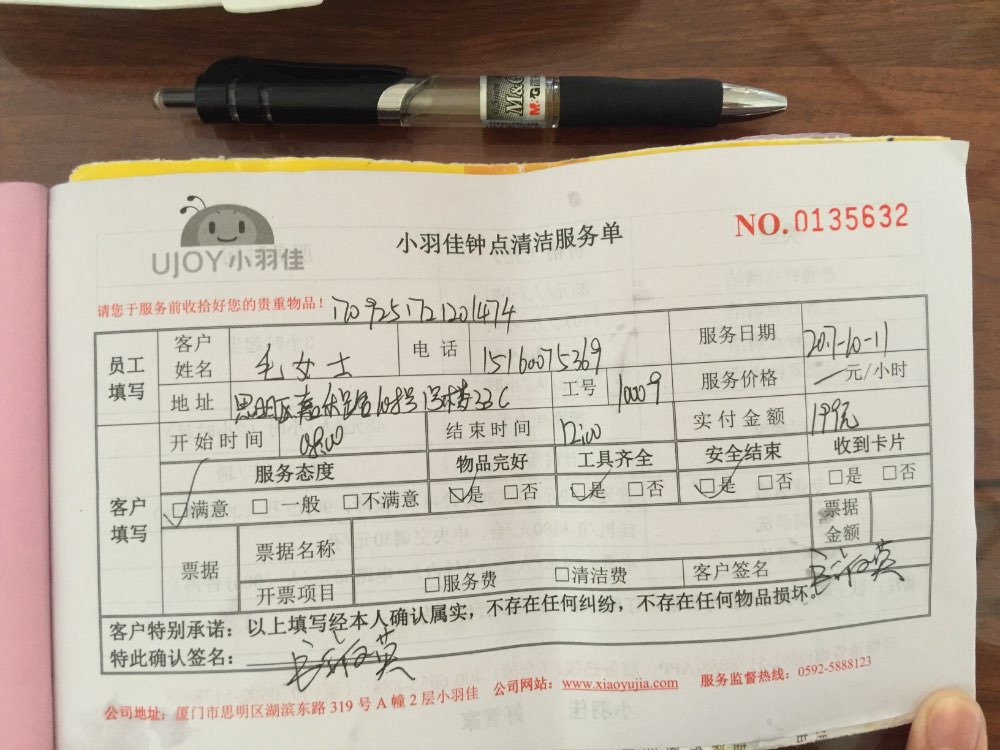 M&G
UJOY小羽佳
小羽佳钟点清洁服务单
NO.0135632
请您于服务前收拾好您的贵重物品！
1709251721201474
员工填写
客户姓名 毛女士 电话 15160075369 服务日期 2017-10-11
地址 思明区嘉禾路 号 号楼33C 工号 10009 服务价格 元/小时
客户填写
开始时间 08:00 结束时间 12:00 实付金额 199元
服务态度 物品完好 工具齐全 安全结束 收到卡片
□满意 □一般 □不满意 □是 □否 □是 □否 □是 □否 □是 □否
票据 票据名称 票据金额
开票项目 □服务费 □清洁费 客户签名
客户特别承诺：以上填写经本人确认属实，不存在任何纠纷，不存在任何物品损坏。
特此确认签名：
公司地址：厦门市思明区湖滨东路 319 号 A 幢 2 层小羽佳 公司网站：www.xiaoyujia.com 服务监督热线：0592-5888123